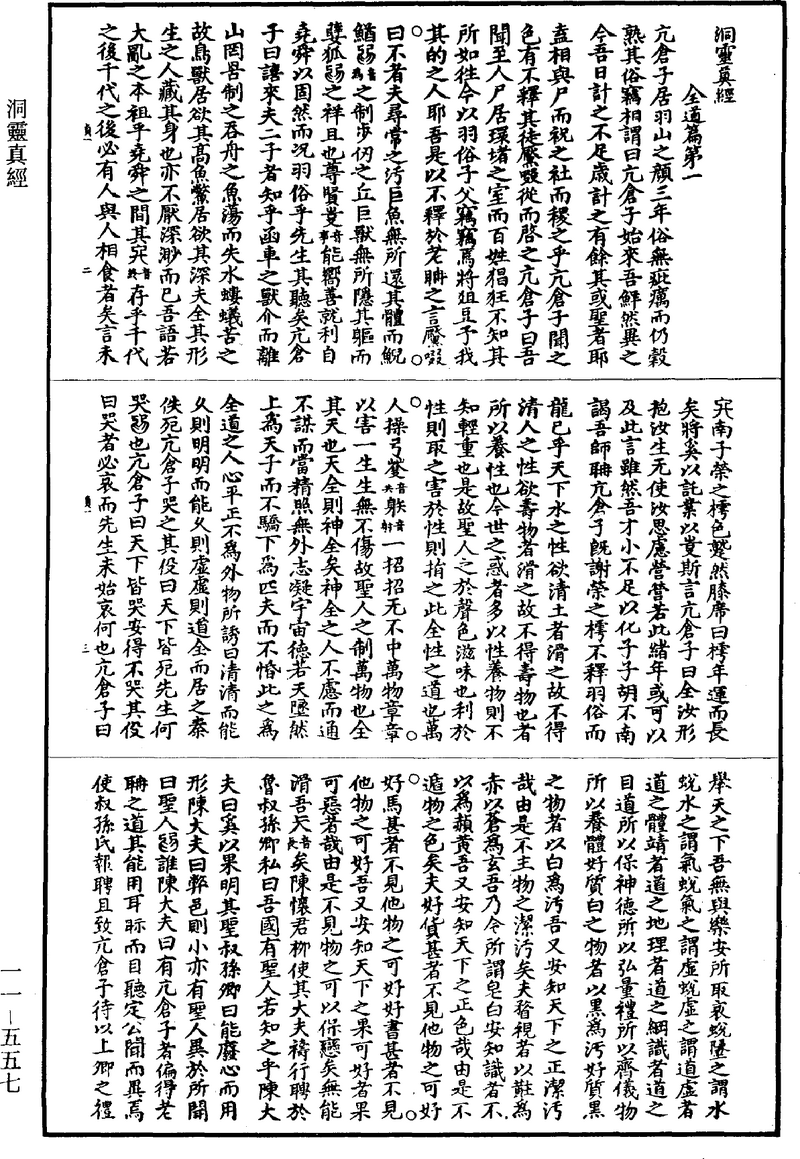 洞靈真經
全道篇第一
亢倉子居羽山之顏三年俗無疵癘而仍穀
熟其俗竊相謂曰亢倉子始來吾鮮然異之
今吾日計之不足歲計之有餘其或聖者耶
盍相與尸而祝之社而稷之乎亢倉子聞之
色有不釋其徒𪒠啜從而啓之亢倉子曰吾
聞至人尸居環堵之室而百姓猖狂不知其
所如徃今以羽俗子父竊竊焉將俎豆予我
其的之人耶吾是以不釋於老聃之言𪒠啜
曰不者夫尋常之污巨魚無所還其體而鯢
鰌
音為
之制步仞之丘巨獸無所隱其軀而
㜸狐
之祥且也尊賢
音事
能嚮善就利自
堯舜以固然而况羽俗乎先生其聽矣亢倉
子曰譆來夫二子者知乎函車之獸介而離
山罔罟制之吞舟之魚蕩而失水螻蟻苦之
故鳥獸居欲其高魚鱉居欲其深夫全其形
生之人藏其身也亦不厭深渺而已吾語若
大亂之本祖乎堯舜之間其
存乎千代
之後千代之後必有人與人相食者矣言未
二
南子榮之樗色蹵然膝席曰樗年運而長
矣將奚以託業以
斯言亢倉子曰全汝形
抱汝生无使汝思慮營營若此緒年或可以
及此言雖然吾才小不足以化子子胡不南
謁吾師聃亢倉子旣謝榮之樗不釋羽俗而
龍已乎天下水之性欲清土者滑之故不得
清人之性欲壽物者滑之故不得壽物也者
所以養性也今世之惑者多以性養物則不
知輕重也是故聖人之於聲色滋味也利於
性則取之害於性則捐之此全性之道也萬
人操弓
一招招无不中萬物章章
以害一生生無不傷故聖人之制萬物也全
其天也天全則神全矣神全之人不慮而通
不謀而當精照無外志凝宇宙德若天墬然
上為天子而不驕下為匹夫而不惛此之為
全道之人心平正不為外物所誘曰清清而能
久則明明而能久則虛虛則道全而居之秦
佚死亢倉子哭之其役曰天下皆死先生何
哭
也亢倉子曰天下皆哭安得不哭其役
曰哭者必哀而先生未始哀何也亢倉子曰
三
舉天之下吾無與樂安所取哀蛻墬之謂水
蛻水之謂氣蛻氣之謂虛蛻虛之謂道虛者
道之體靖者道之地理者道之綱識者道之
目道所以保神德所以弘量禮所以齊儀物
所以養體好質白之物者以黑為污好質黑
之物者以白為污吾又安知天下之正潔污
哉由是不主物之潔污矣夫瞀視者以黈為
赤以蒼為玄吾乃今所謂皂白安知識者不
以為頳黃吾又安知天下之正色哉由是不
遁物之色矣夫好貨甚者不見他物之可好
好馬甚者不見他物之可好好書甚者不見
他物之可好吾又安知天下之果可好者果
可惡者哉由是不見物之可以保戀矣無能
滑吾
矣陳懷君柳使其大夫禱行聘於
魯叔孫卿私曰吾國有聖人若知之乎陳大
夫曰奚以果明其聖叔孫卿曰能廢心而用
形陳大夫曰弊邑則小亦有聖人異於所聞
曰聖人
誰陳大夫曰有亢倉子者偏得老
聃之道其能用耳眎而目聽定公聞而異焉
使叔孫氏報聘且致亢倉子待以上卿之禮
洞靈真經
一一—五五七